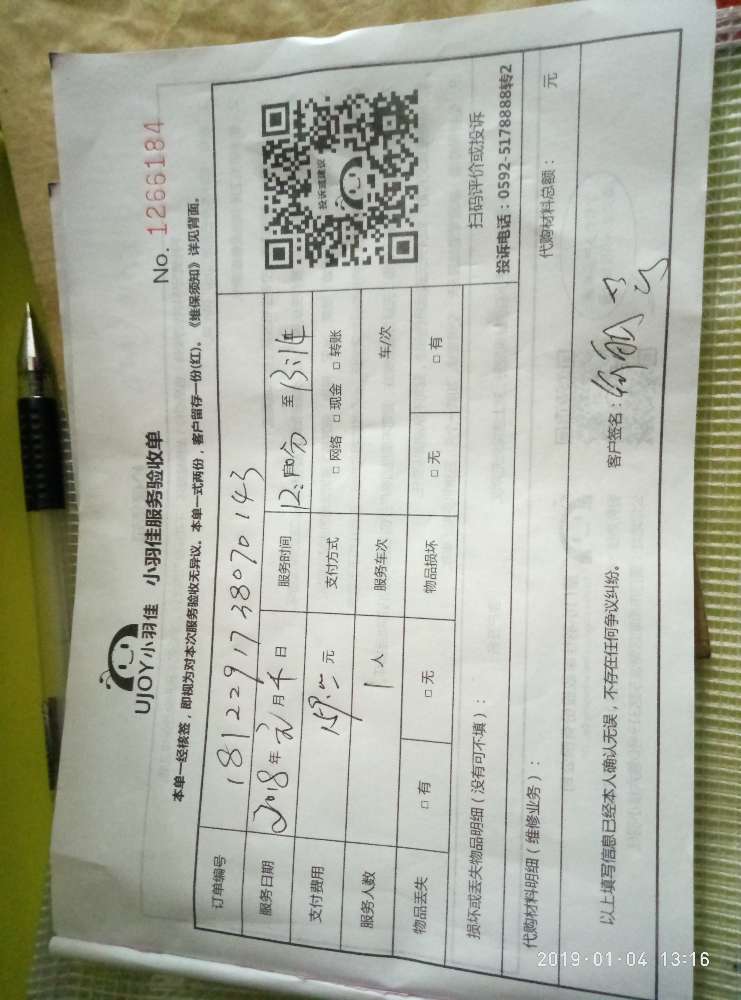 No. 1266184
UJOY小羽佳 小羽佳服务验收单
本单一经核签，即视为对本次服务验收无异议。本单一式两份，客户留存一份(红)。《维保须知》详见背面。
订单编号 1812291738070143
服务日期 2018年 月 日 服务时间 至
支付费用 元 支付方式 □ 网络 □ 现金 □ 转账
服务人数 1 人 服务车次 车/次
物品丢失 □ 有 □ 无 物品损坏 □ 无 □ 有
投诉或建议
扫码评价或投诉
投诉电话：0592-5178888转2
损坏或丢失物品明细（没有可不填）：
代购材料明细（维修业务）： 代购材料总额： 元
以上填写信息已经本人确认无误，不存在任何争议纠纷。 客户签名：
2019-01-04 13:16